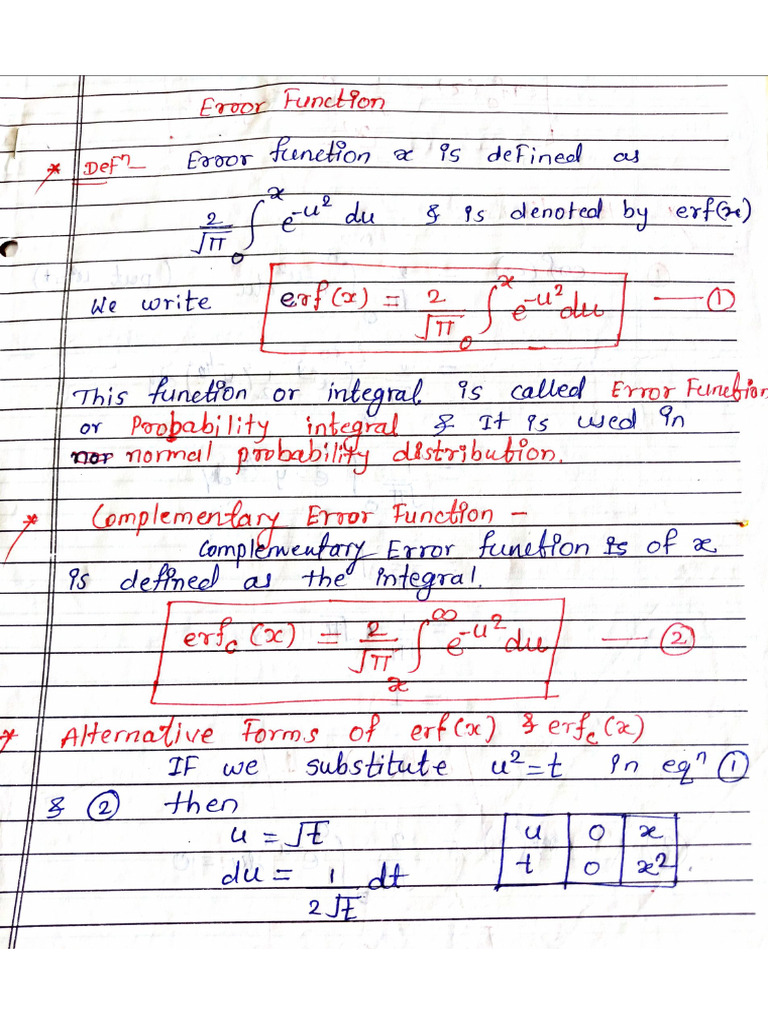 Error Function
* Defⁿ Error function x is defined as
2/√π ∫₀ˣ e^-u² du & is denoted by erf(x)
We write erf(x) = 2/√π ∫₀ˣ e^-u² du — ①
This function or integral is called Error Function
or Probability integral & It is used in
nor normal probability distribution.
* Complementary Error Function -
Complementary Error function is of x
is defined as the integral.
erfc(x) = 2/√π ∫ₓ^∞ e^-u² du — ②
* Alternative Forms of erf(x) & erfc(x)
IF we substitute u²=t in eqⁿ ①
& ② then
u = √t
du = 1/2√t dt
u 0 x
t 0 x²